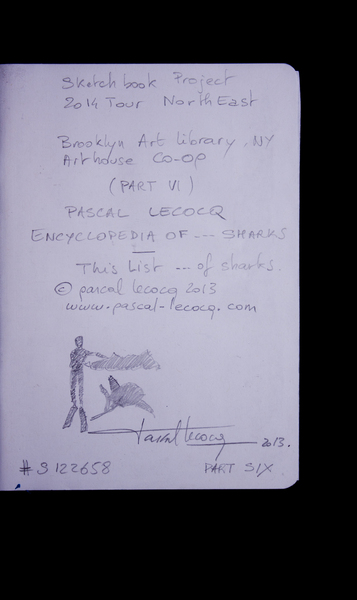 Sketchbook Project
2014 Tour NorthEast
Brooklyn Art Library, NY
Arthouse Co-op
(PART VI)
PASCAL LECOCQ
ENCYCLOPEDIA OF --- SHARKS
This list --- of sharks.
© pascal lecocq 2013
www.pascal-lecocq.com
Pascal Lecocq 2013.
#S122658 PART SIX